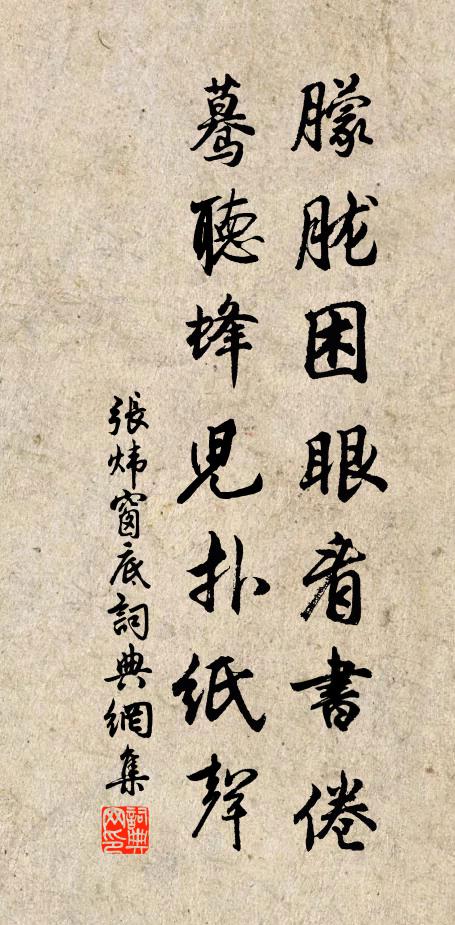 朦朧困眼看書倦
驀聽蜂兒扑紙聲
張煒窗底詞典網集
詞典網印